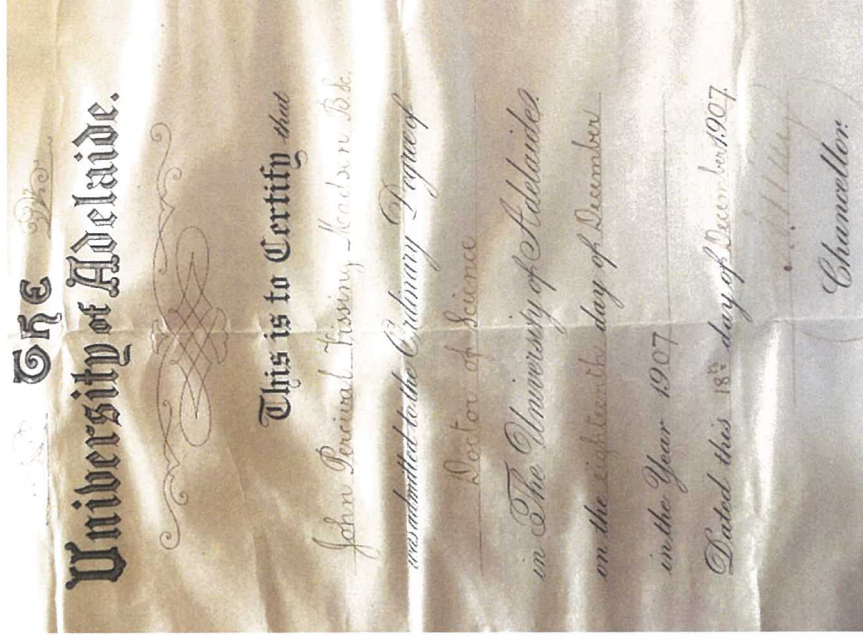 The
University of Adelaide.
This is to Certify that
John Percival Vissing Madsen B.Sc.
was admitted to the Ordinary Degree of
Doctor of Science
in The University of Adelaide.
on the eighteenth day of December
in the Year 1907
Dated this 18th day of December 1907.
Chancellor.